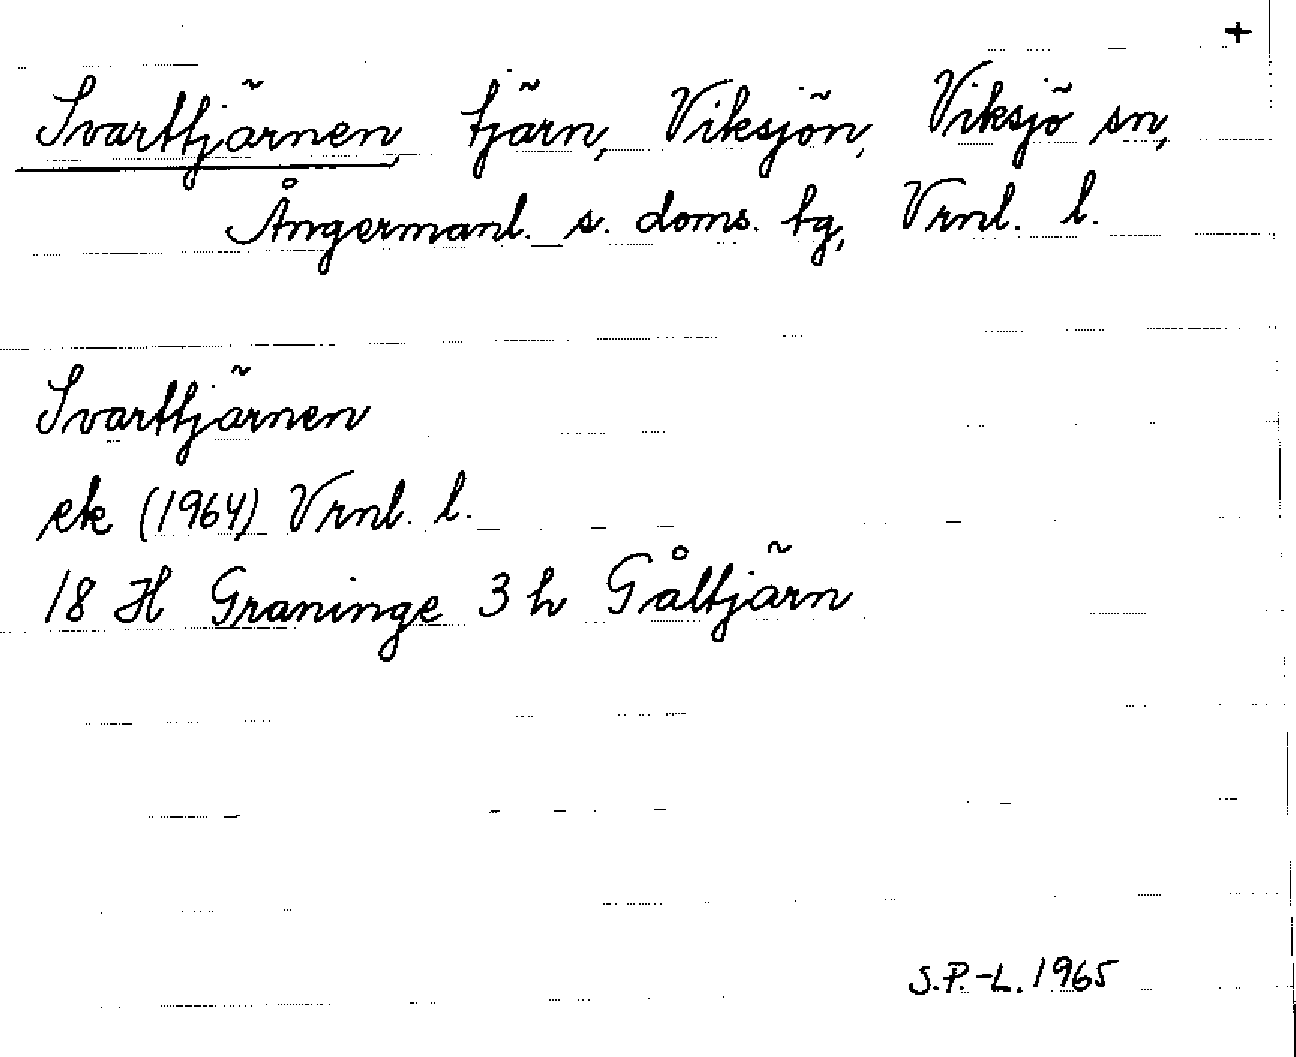 +
Svarttjärnen tjärn, Viksjön, Viksjö sn,
Ångermanl. s. doms. tg, Vrnl. l.
Svarttjärnen
ek (1964) Vrnl. l.
18 H Graninge 3 h Gåltjärn
S.P.-L. 1965